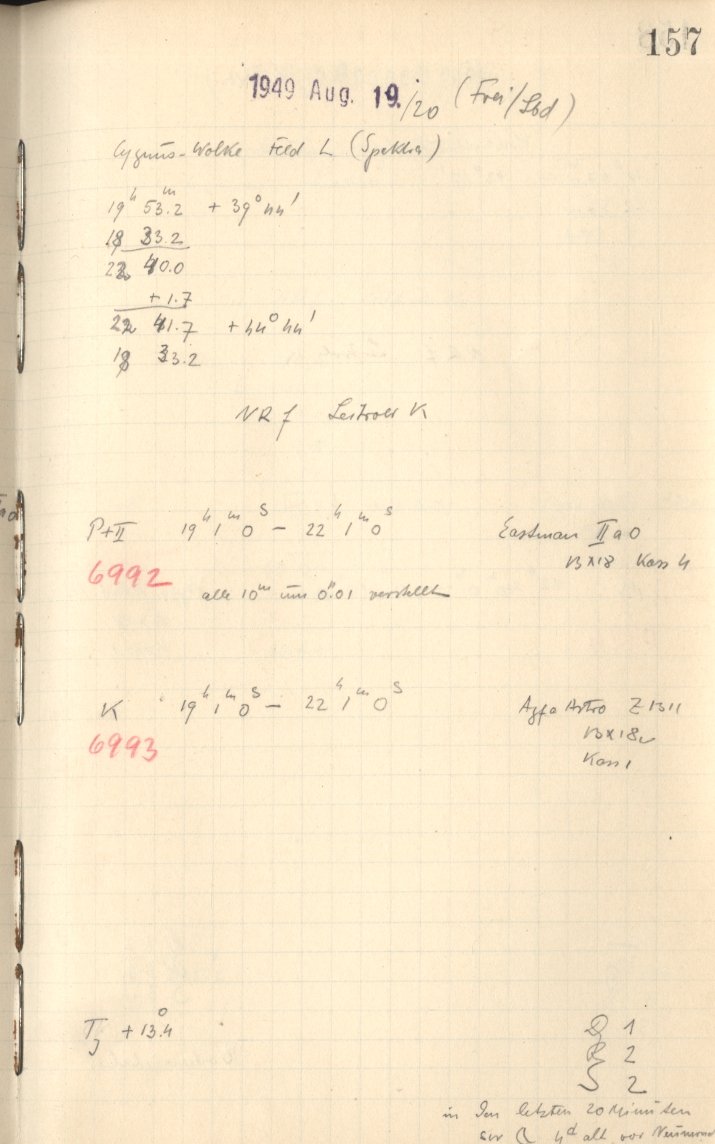 157
1949 Aug. 19./20 (Frei/Sbd)
Cygnus-Wolke Feld L (Spektra)
19ʰ 53.2ᵐ + 39° 44'
18 33.2
22 40.0
+ 1.7
22 41.7 + 44° 44'
18 33.2
NR f K
P+II 19ʰ 1ᵐ 0ˢ — 22ʰ 1ᵐ 0ˢ Eastman IIaO
6992 13x18 Kass 4
alle 10ᵐ um 0".01 verstellt
K 19ʰ 1ᵐ 0ˢ — 22ʰ 1ᵐ 0ˢ Agfa Astro Z 1311
6993 13x18
Kass 1
T_J + 13.4° D 1
R 2
S 2
in den letzten 20 Minuten
4ᵈ alt vor Neumond